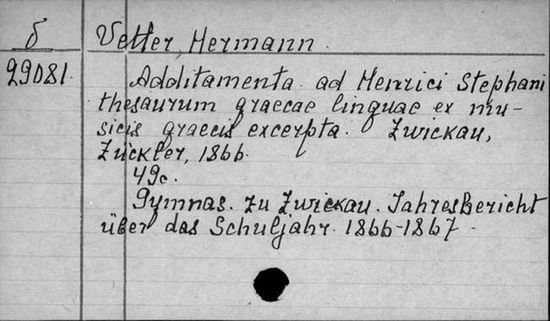 б Vetter, Hermann.
29081. Additamenta ad Henrici Stephani
thesaurum graecae linguae ex mu-
sicis graecis excerpta. Zwickau,
Zückler, 1866.
49c.
Gymnas. zu Zwickau. Jahresbericht
über das Schuljahr 1866-1867.